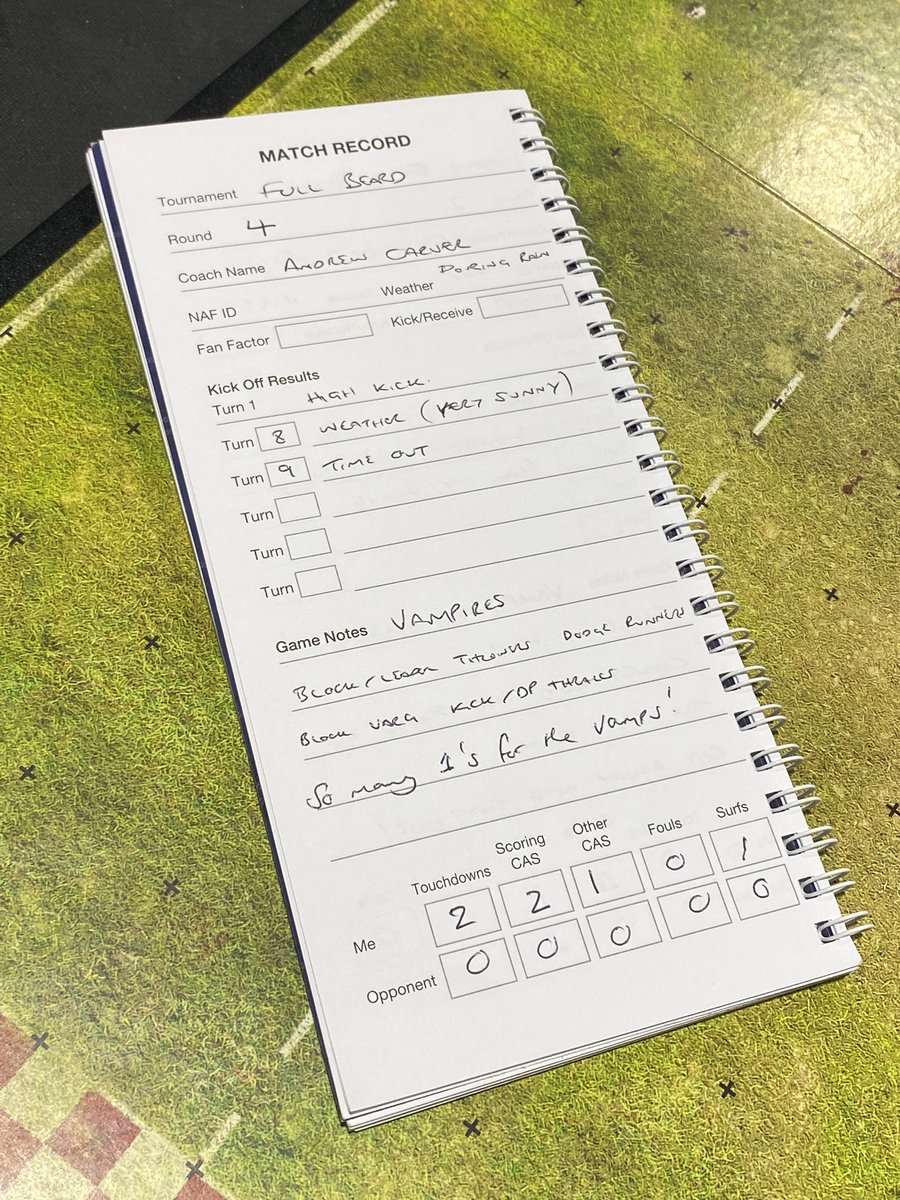 MATCH RECORD
Tournament FULL BEARD
Round 4
Coach Name ANDREW CARVER
NAF ID Weather PORING RAIN
Fan Factor Kick/Receive
Kick Off Results
Turn 1 HIGH KICK.
Turn 8 WEATHER (VERY SUNNY)
Turn 9 TIME OUT
Turn
Turn
Turn
Game Notes VAMPIRES
BLOCK/LEADER THROWERS DODGE RUNNERS
BLOCK VARG KICK/DP THRALLS
So many 1's for the Vamps!
Touchdowns Scoring CAS Other CAS Fouls Surfs
Me 2 2 1 0 1
Opponent 0 0 0 0 0